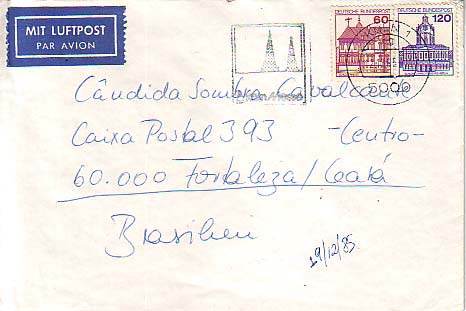 MIT LUFTPOST
PAR AVION
DEUTSCHE BUNDESPOST
60
DEUTSCHE BUNDESPOST
120
1
Cândida Sombra Cavalcante
Caixa Postal 393 -Centro-
60.000 Fortaleza/Ceará
Brasilien
19/12/85